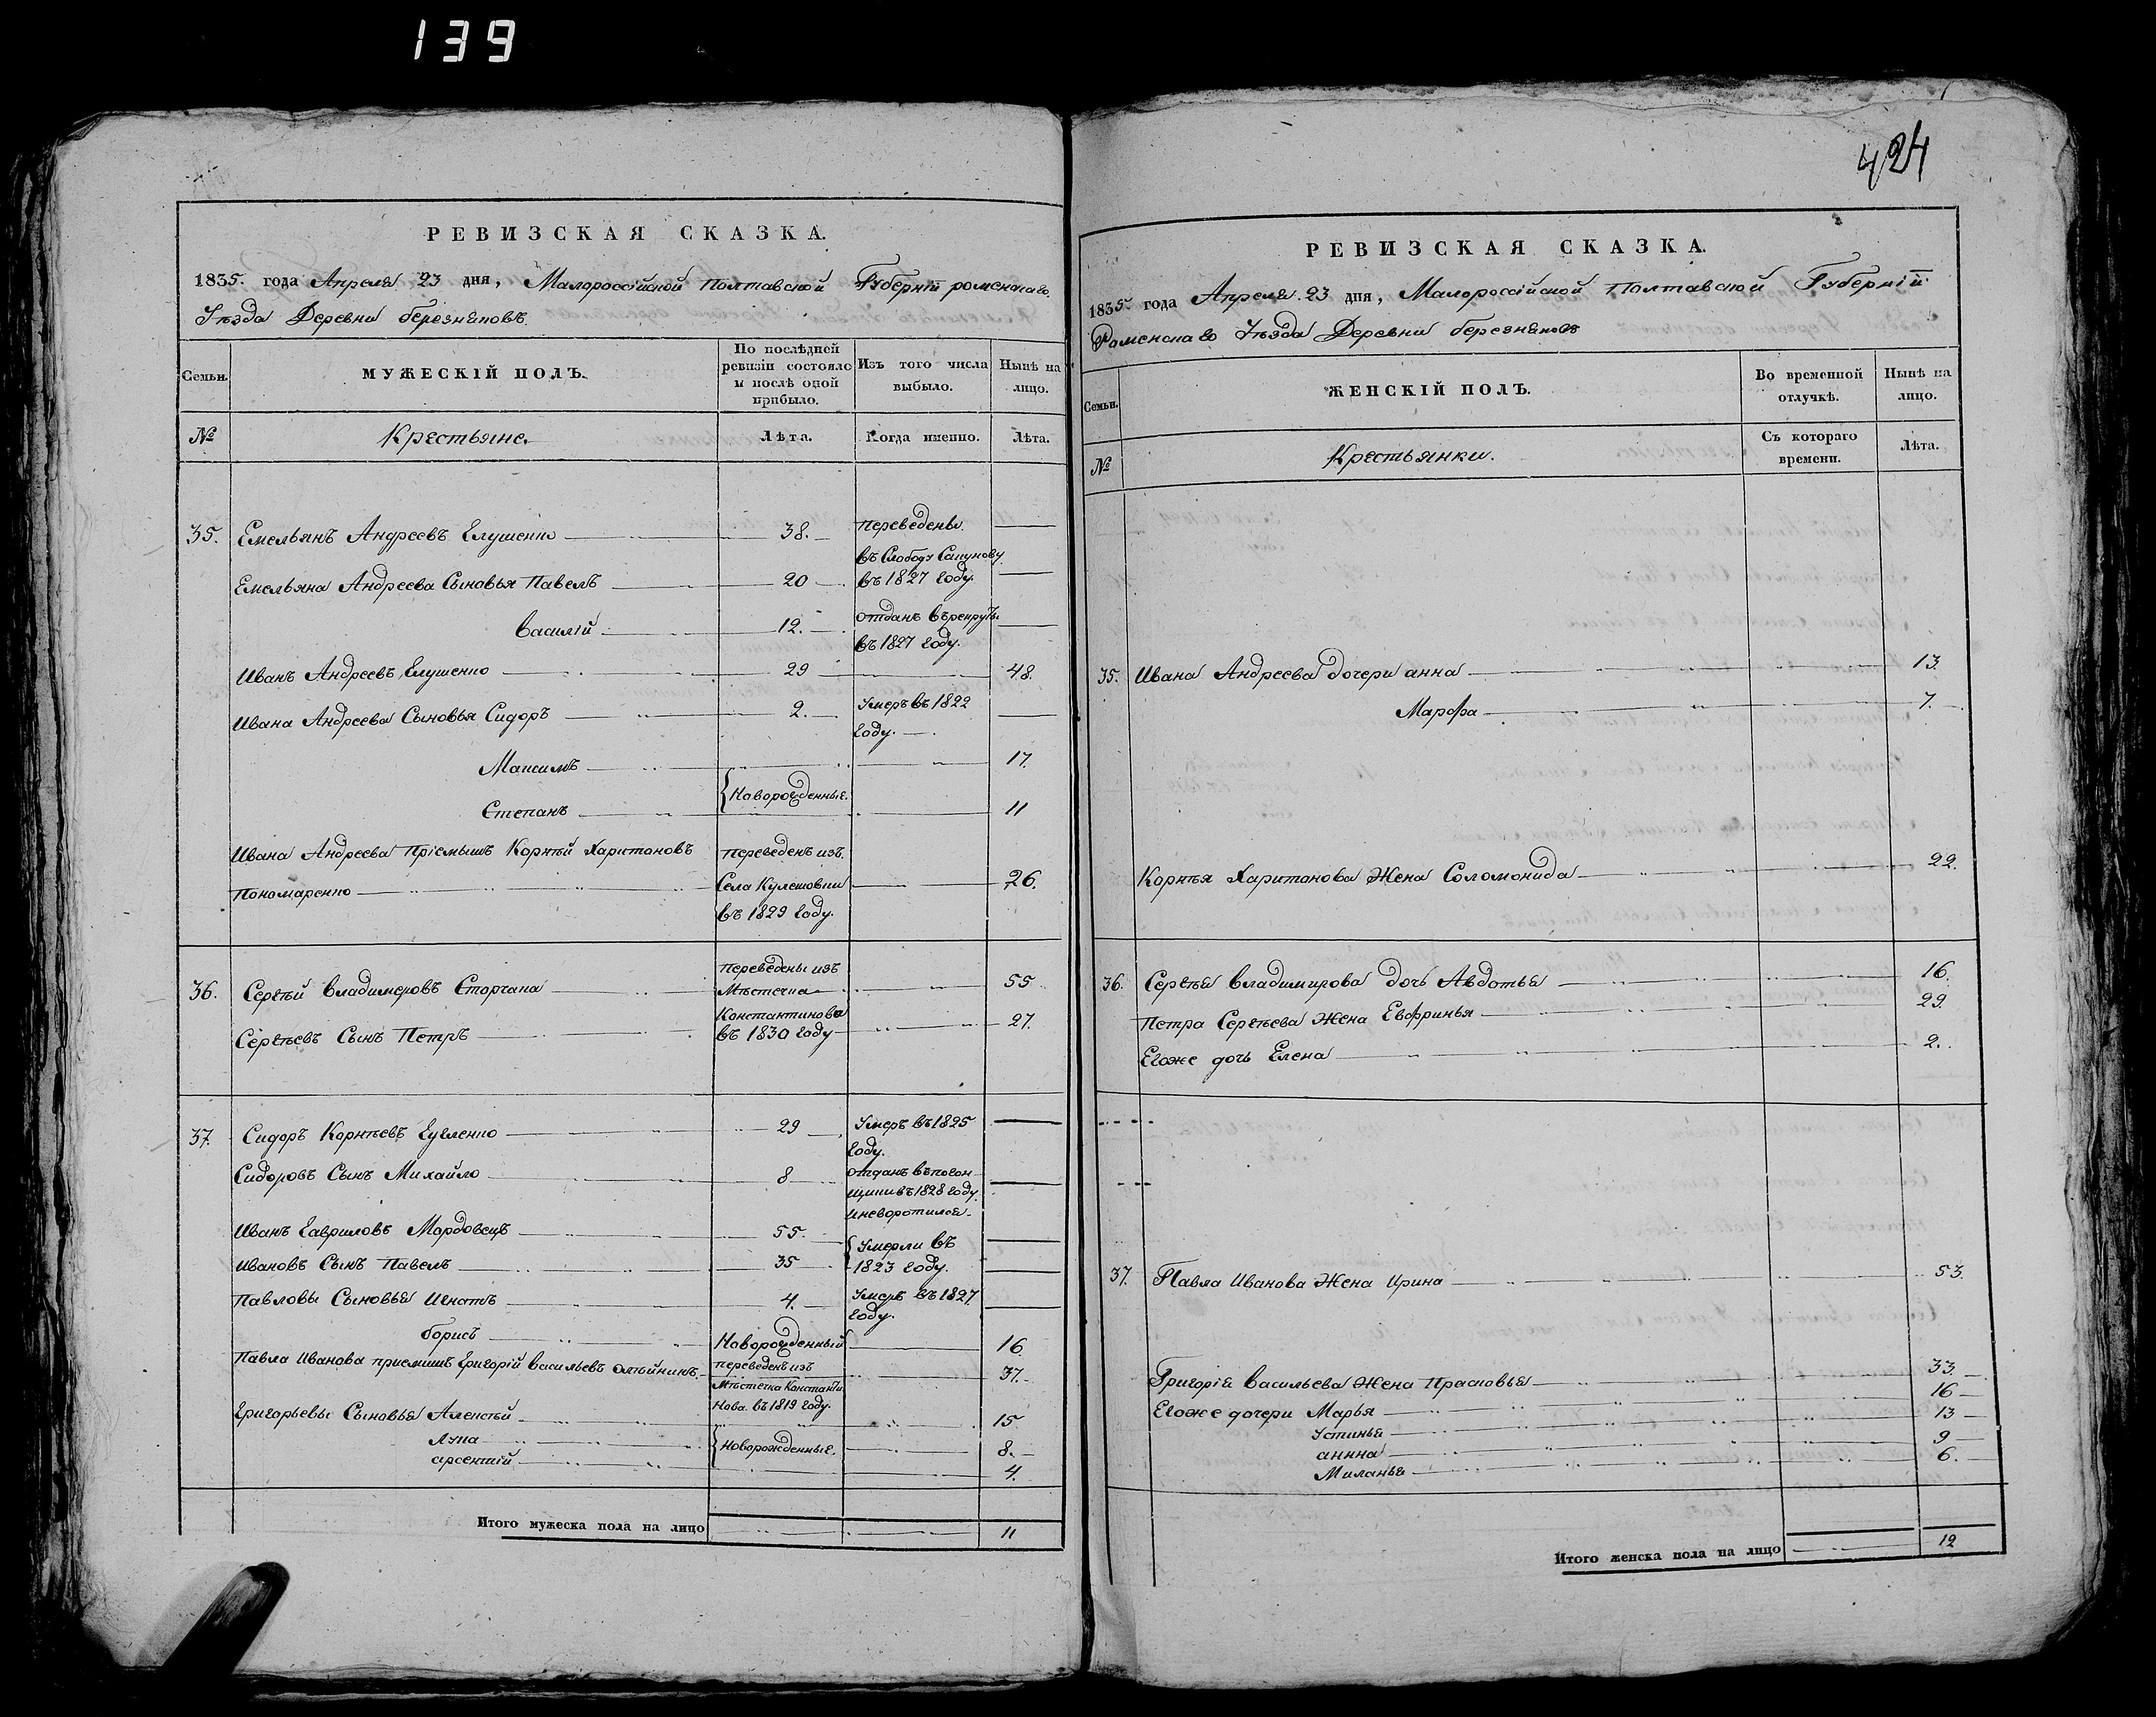 139
424
РЕВИЗСКАЯ СКАЗКА.
1835. года Апреля 23 дня, Малороссійской Полтавской Губерніи роменскаго
Уѣзда Деревни березняковъ.
Семьи.
МУЖЕСКІЙ ПОЛЪ.
По послѣдней ревизіи состояло и послѣ оной прибыло.
Изъ того числа выбыло.
Нынѣ на лицо.
№ Крестьяне. Лѣта. Когда именно. Лѣта.
35. Емельянъ Андреевъ 38. переведены
въ Слободу Сапунову
Емельяна Андреева Сыновья Павелъ 20 въ 1827 году.
василій 12. отданъ въ рекруты
въ 1827 году.
Иванъ Андреевъ 29 48.
Ивана Андреева Сыновья Сидоръ 2. Умеръ въ 1822
году.
Максимъ 17.
Новорожденные.
Степанъ 11
Ивана Андреева Пріемышъ Корнѣй Харитоновъ переведенъ изъ
Пономаренко Села Кулешовки 26.
въ 1829 году.
36. Сергѣй владимеровъ Сторчака переведены изъ Мѣстечка 55
Константинова
Сергѣевъ Сынъ Петръ въ 1830 году 27.
37. Сидоръ Корнѣевъ 29 Умеръ въ 1825
году.
Сидоровъ Сынъ Михайло 8 отданъ въ погон
щики въ 1828 году
и неворотился
Иванъ Гавриловъ Мордовецъ 55. Умерли въ
Ивановъ Сынъ Павелъ 35 1823 году.
Павловы Сыновья Игнатъ 4. Умеръ въ 1827
году.
борисъ Новорожденный 16
Павла Иванова приемышъ Григорій васильевъ олѣйникъ. переведенъ изъ 37.
Мѣстечка Константи
нова. въ 1819 году.
Григорьевы Сыновья Алексѣй 15
Лука Новорожденные. 8.
арсентій 4.
Итого мужеска пола на лицо 11
РЕВИЗСКАЯ СКАЗКА.
1835. года Апреля 23 дня, Малороссійской Полтавской Губерніи
Роменскаго Уѣзда Деревни березняковъ
Семьи.
ЖЕНСКІЙ ПОЛЪ.
Во временной отлучкѣ.
Нынѣ на лицо.
№ Крестьянки. Съ котораго времени. Лѣта.
35. Ивана Андреева дочери анна 13.
Марфа 7.
Корнѣя Харитонова Жена Соломонида 22.
36. Сергѣя владимирова дочь Авдотья 16.
Петра Сергѣева Жена Евфринья 29.
Егоже дочь Елена 2.
37. Павла Иванова Жена Ирина 53.
Григорія васильева Жена Прасковья 33.
Егоже дочери Марья 16
Устинья 13
аннна 9
Миланья 6.
Итого женска пола на лицо 12